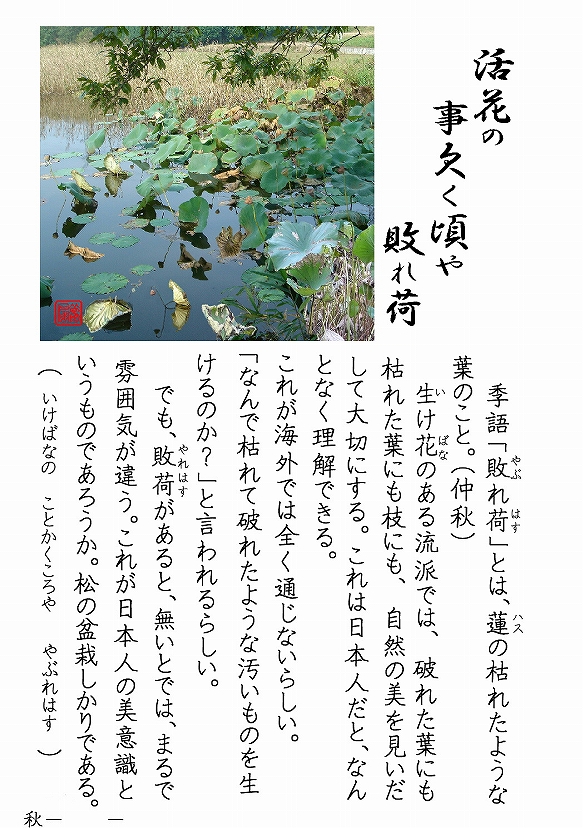 活花の
事欠く頃や
敗れ荷
季語「敗れ荷」とは、蓮の枯れたような
葉のこと。（仲秋）
生け花のある流派では、破れた葉にも
枯れた葉にも枝にも、自然の美を見いだ
して大切にする。これは日本人だと、なん
となく理解できる。
これが海外では全く通じないらしい。
「なんで枯れて破れたような汚いものを生
けるのか？」と言われるらしい。
でも、敗荷があると、無いとでは、まるで
雰囲気が違う。これが日本人の美意識と
いうものであろうか。松の盆栽しかりである。
（いけばなの　ことかくころや　やぶれはす）
秋一　　一